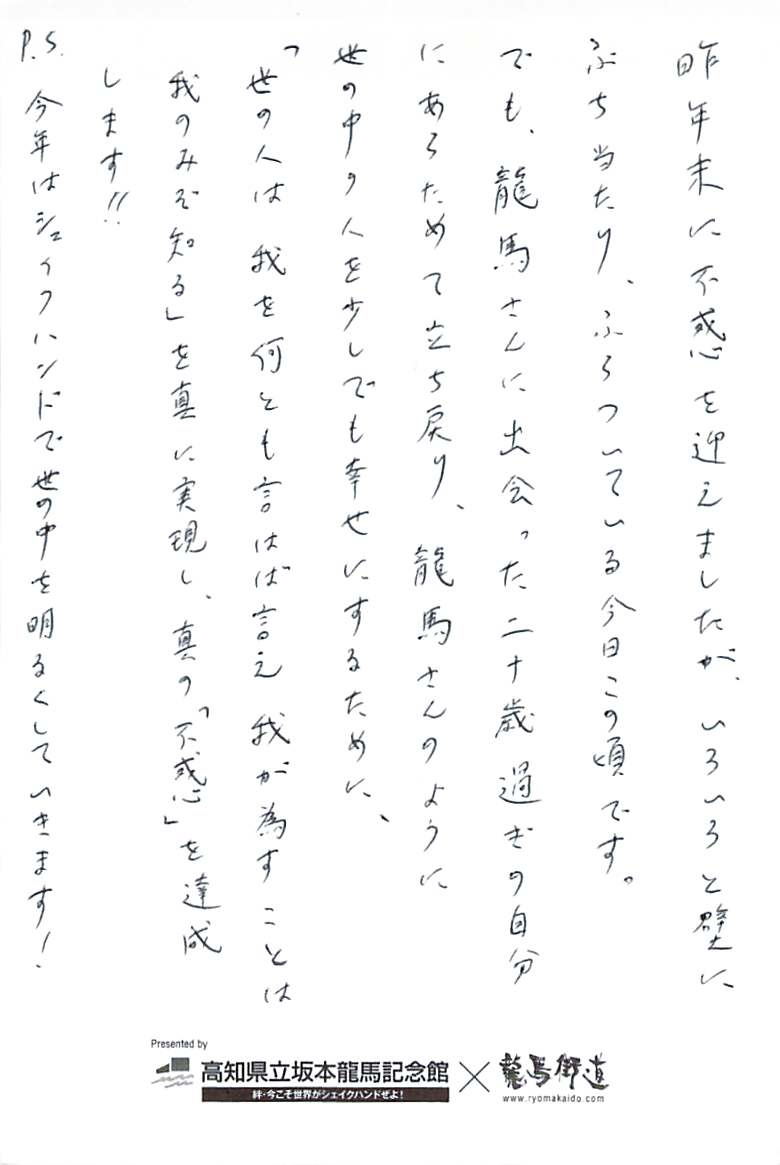 昨年末に不惑を迎えましたが、いろいろと壁に
ぶち当たり、ふらついている今日この頃です。
でも、龍馬さんに出会った二十歳過ぎの自分
にあらためて立ち戻り、龍馬さんのように
世の中の人を少しでも幸せにするために、
「世の人は我を何とも言はば言え 我が為すことは
我のみぞ知る」を真に実現し、真の「不惑」を達成
します!!
P.S. 今年はシェイクハンドで世の中を明るくしていきます!
Presented by
高知県立坂本龍馬記念館 × 龍馬街道
絆・今こそ世界がシェイクハンドぜよ!
www.ryomakaido.com